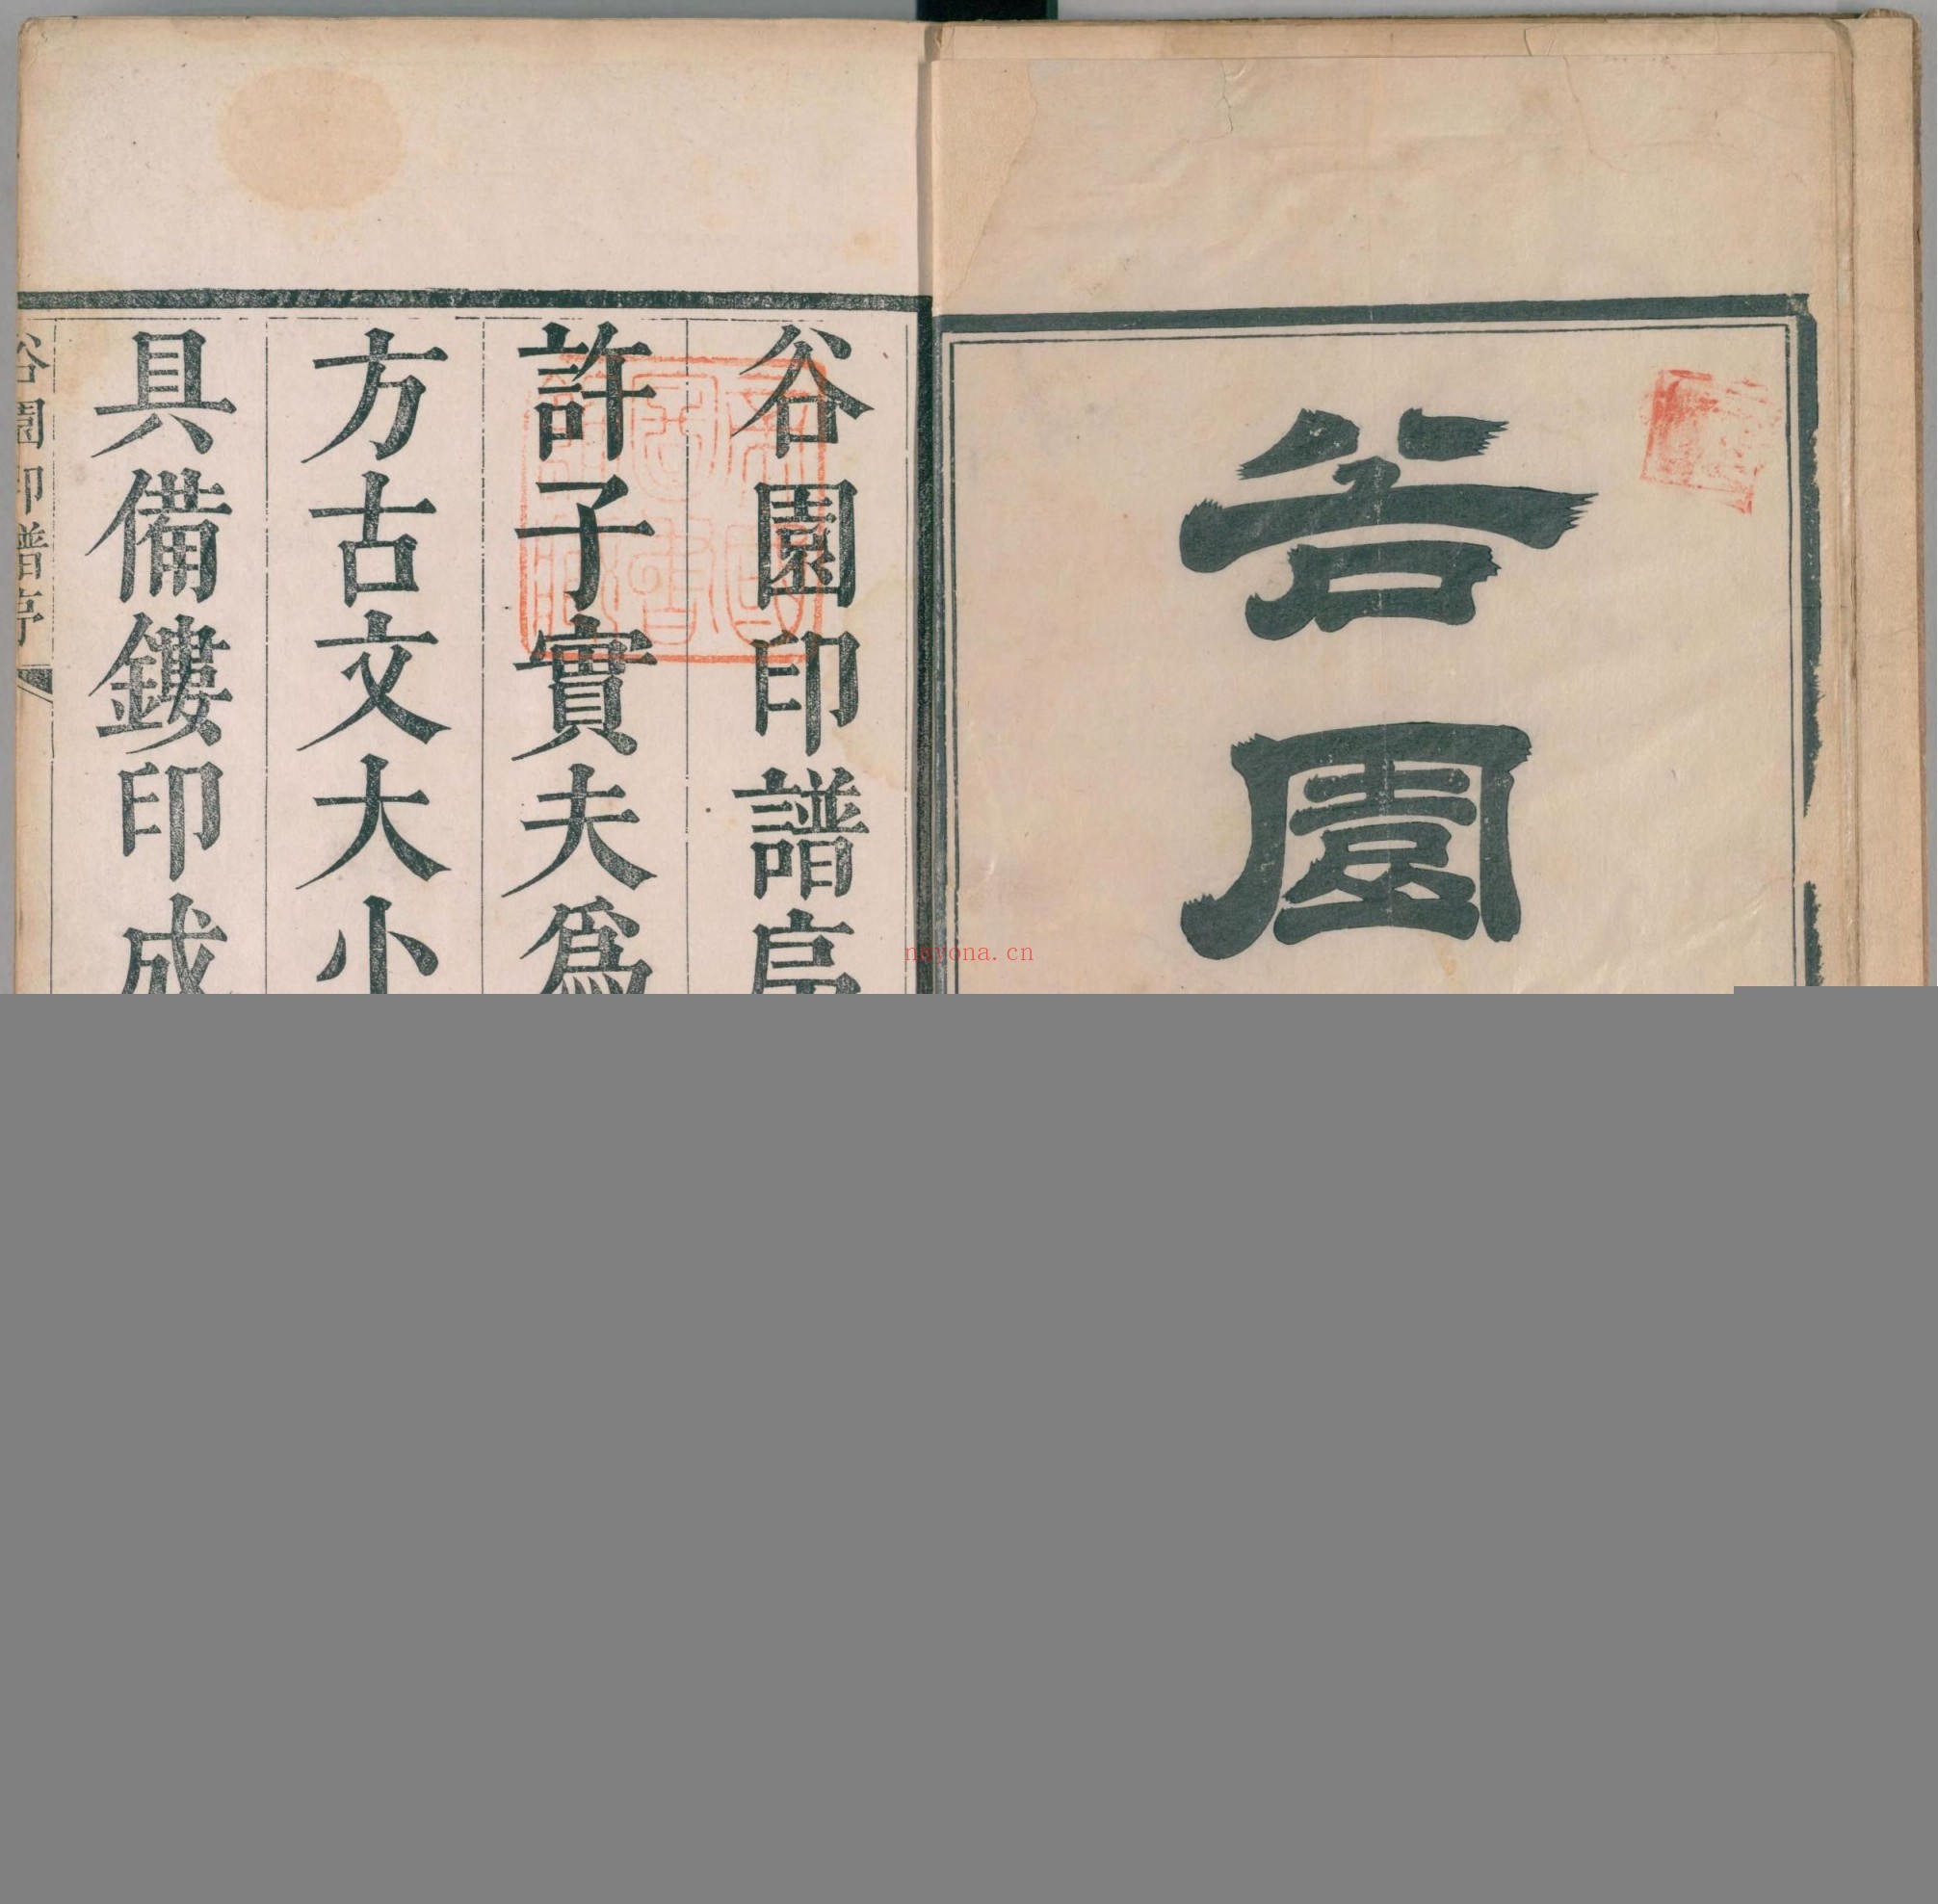 谷園
谷園印譜序
許子實夫爲
方古文大小
具備鏤印成
谷園印譜序
nqyona.cn